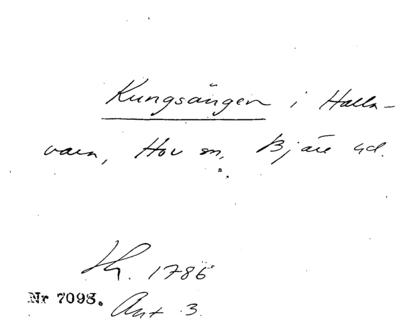 Kungsängen i Halla-
vara, Hov sn, Bjäre hd.
Lh. 1786
Nr 7093. Ant 3.